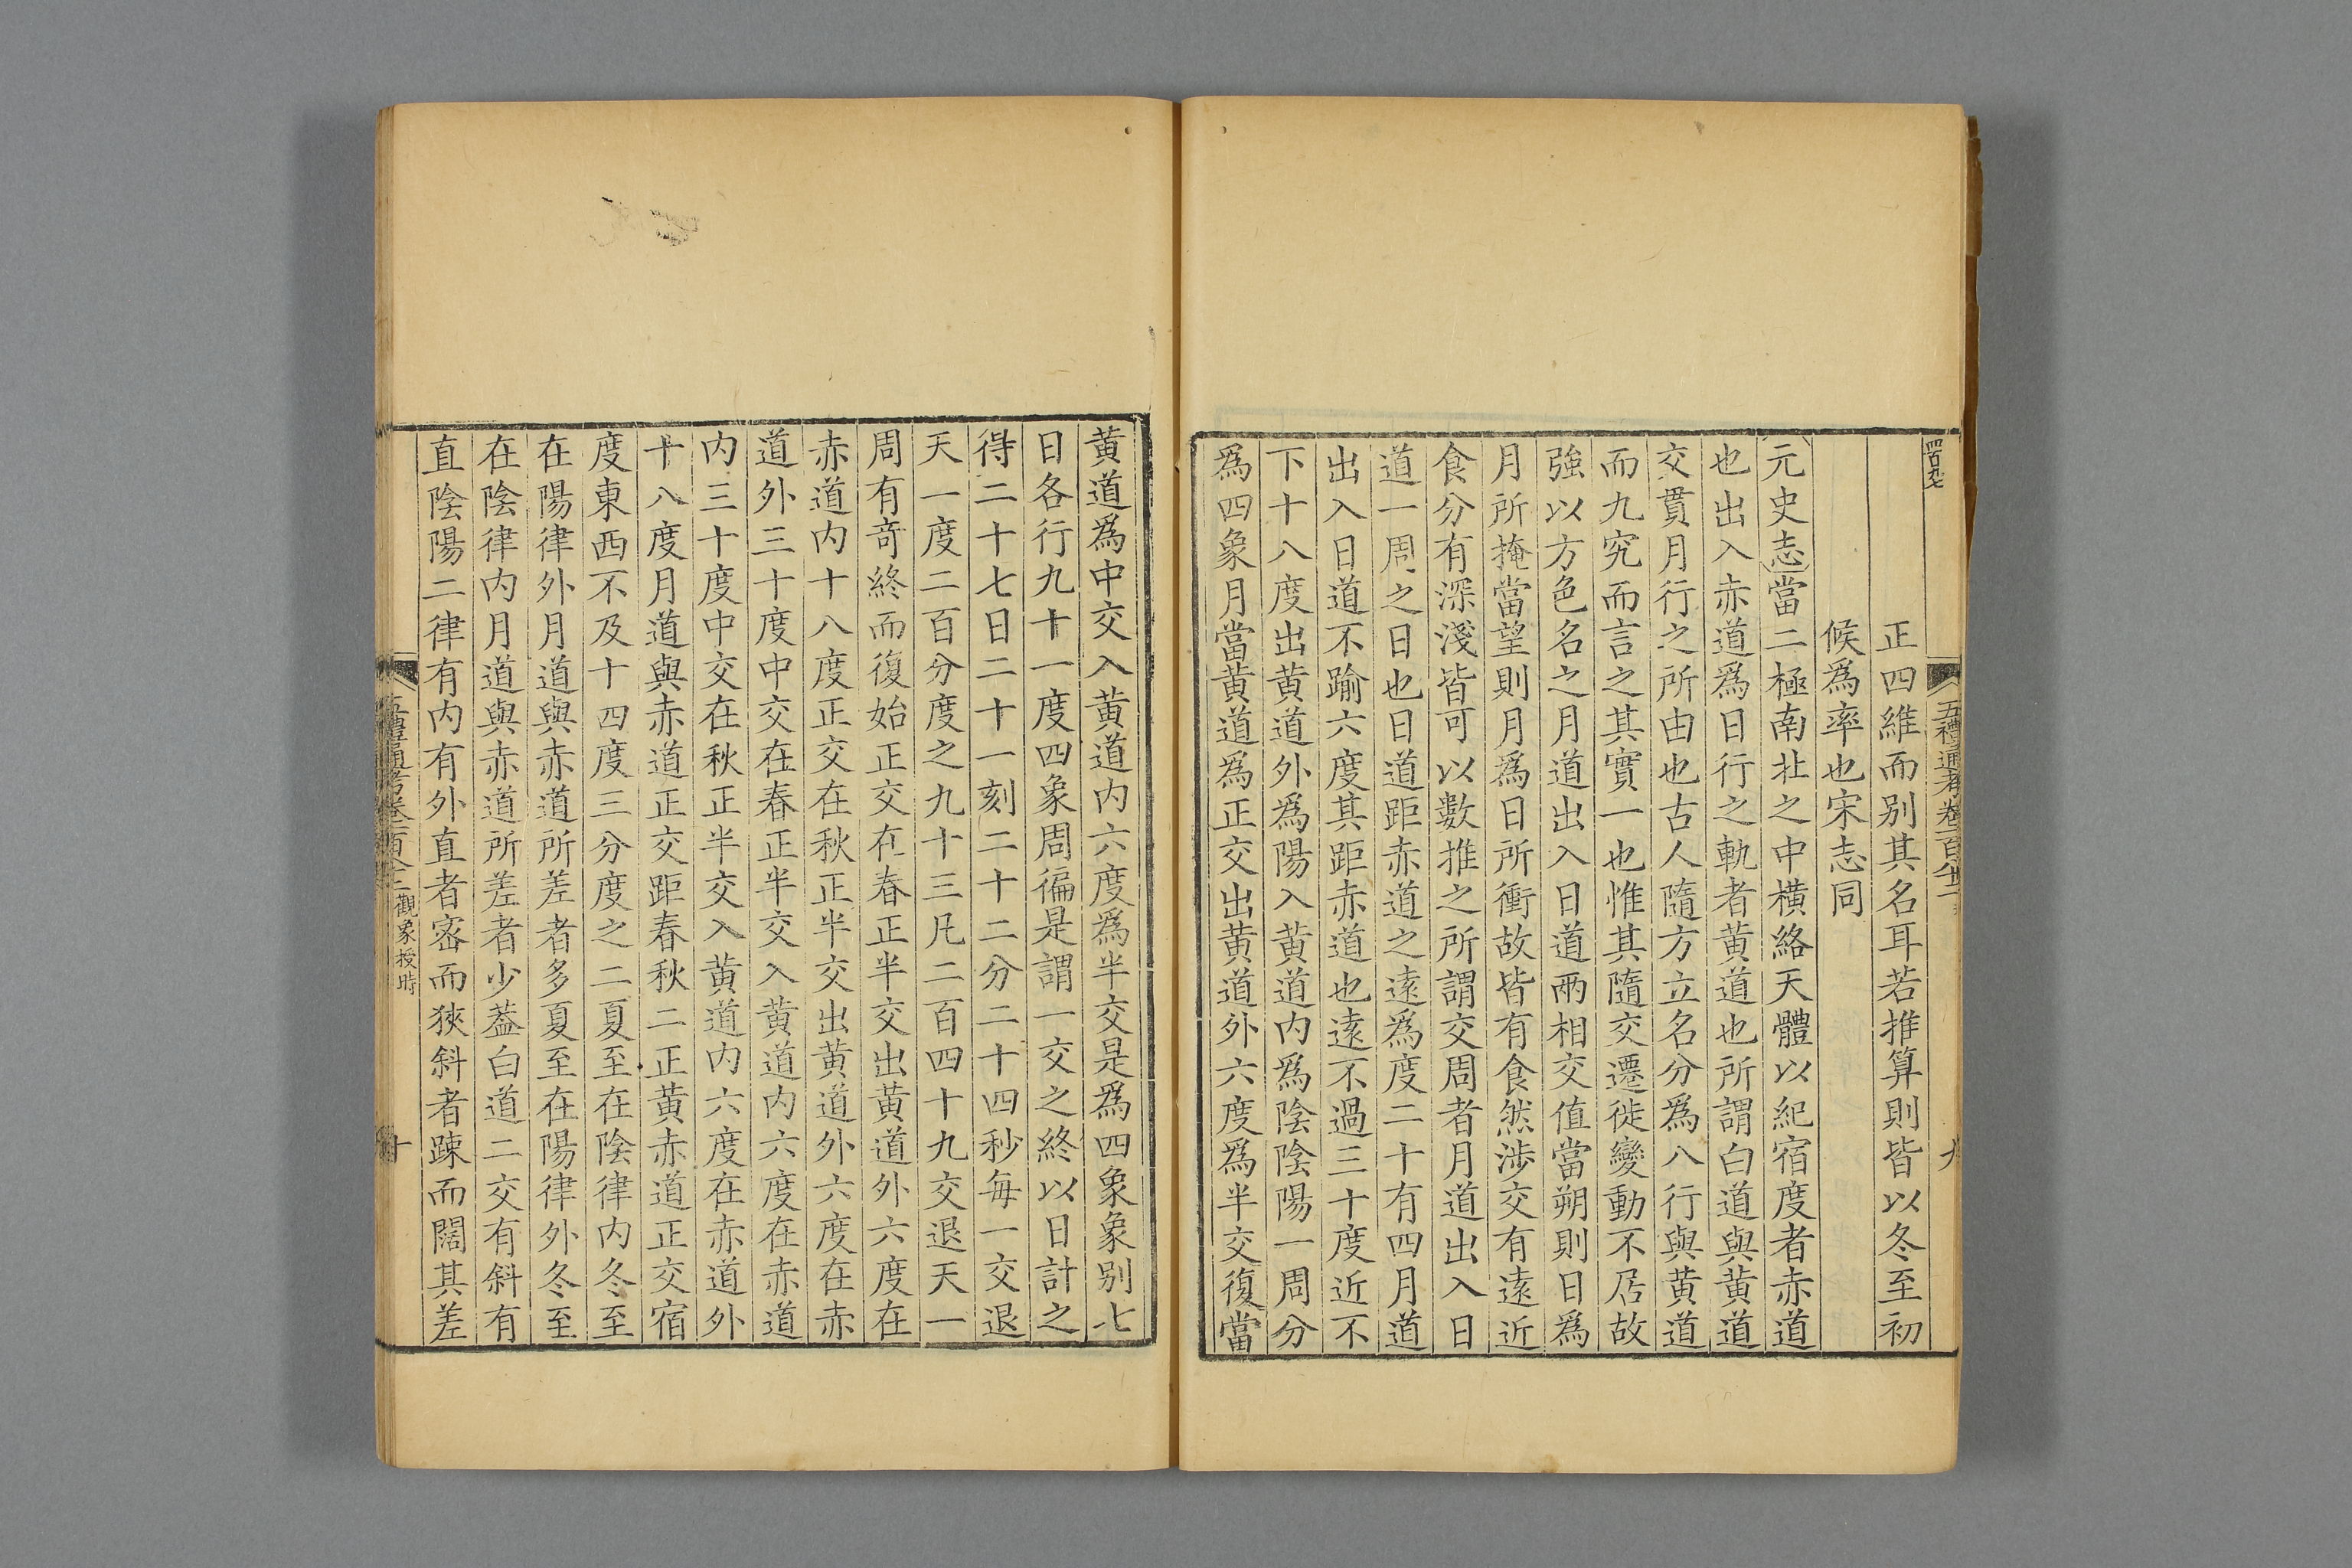 四百九七
五禮通考卷一百八十二
九
正四維而别其名耳若推算則皆以冬至初
候爲率也宋志同
元史志當二極南北之中橫絡天體以紀宿度者赤道
也出入赤道爲日行之軌者黄道也所謂白道與黄道
交貫月行之所由也古人隨方立名分爲八行與黄道
而九究而言之其實一也惟其隨交遷徙變動不居故
強以方色名之月道出入日道兩相交值當朔則日爲
月所掩當望則月爲日所衝故皆有食然涉交有遠近
食分有深淺皆可以數推之所謂交周者月道出入日
道一周之日也日道距赤道之遠爲度二十有四月道
出入日道不踰六度其距赤道也遠不過三十度近不
下十八度出黄道外爲陽入黄道内爲陰陰陽一周分
爲四象月當黄道爲正交出黄道外六度爲半交復當
黄道爲中交入黄道内六度爲半交是爲四象象别七
日各行九十一度四象周徧是謂一交之終以日計之
得二十七日二十一刻二十二分二十四秒每一交退
天一度二百分度之九十三凡二百四十九交退天一
周有竒終而復始正交在春正半交出黄道外六度在
赤道内十八度正交在秋正半交出黄道外六度在赤
道外三十度中交在春正半交入黄道内六度在赤道
内三十度中交在秋正半交入黄道内六度在赤道外
十八度月道與赤道正交距春秋二正黄赤道正交宿
度東西不及十四度三分度之二夏至在陰律内冬至
在陽律外月道與赤道所差者多夏至在陽律外冬至
在陰律内月道與赤道所差者少葢白道二交有斜有
直陰陽二律有内有外直者密而狹斜者踈而闊其差
五禮通考卷一百八十二 觀象授時
十